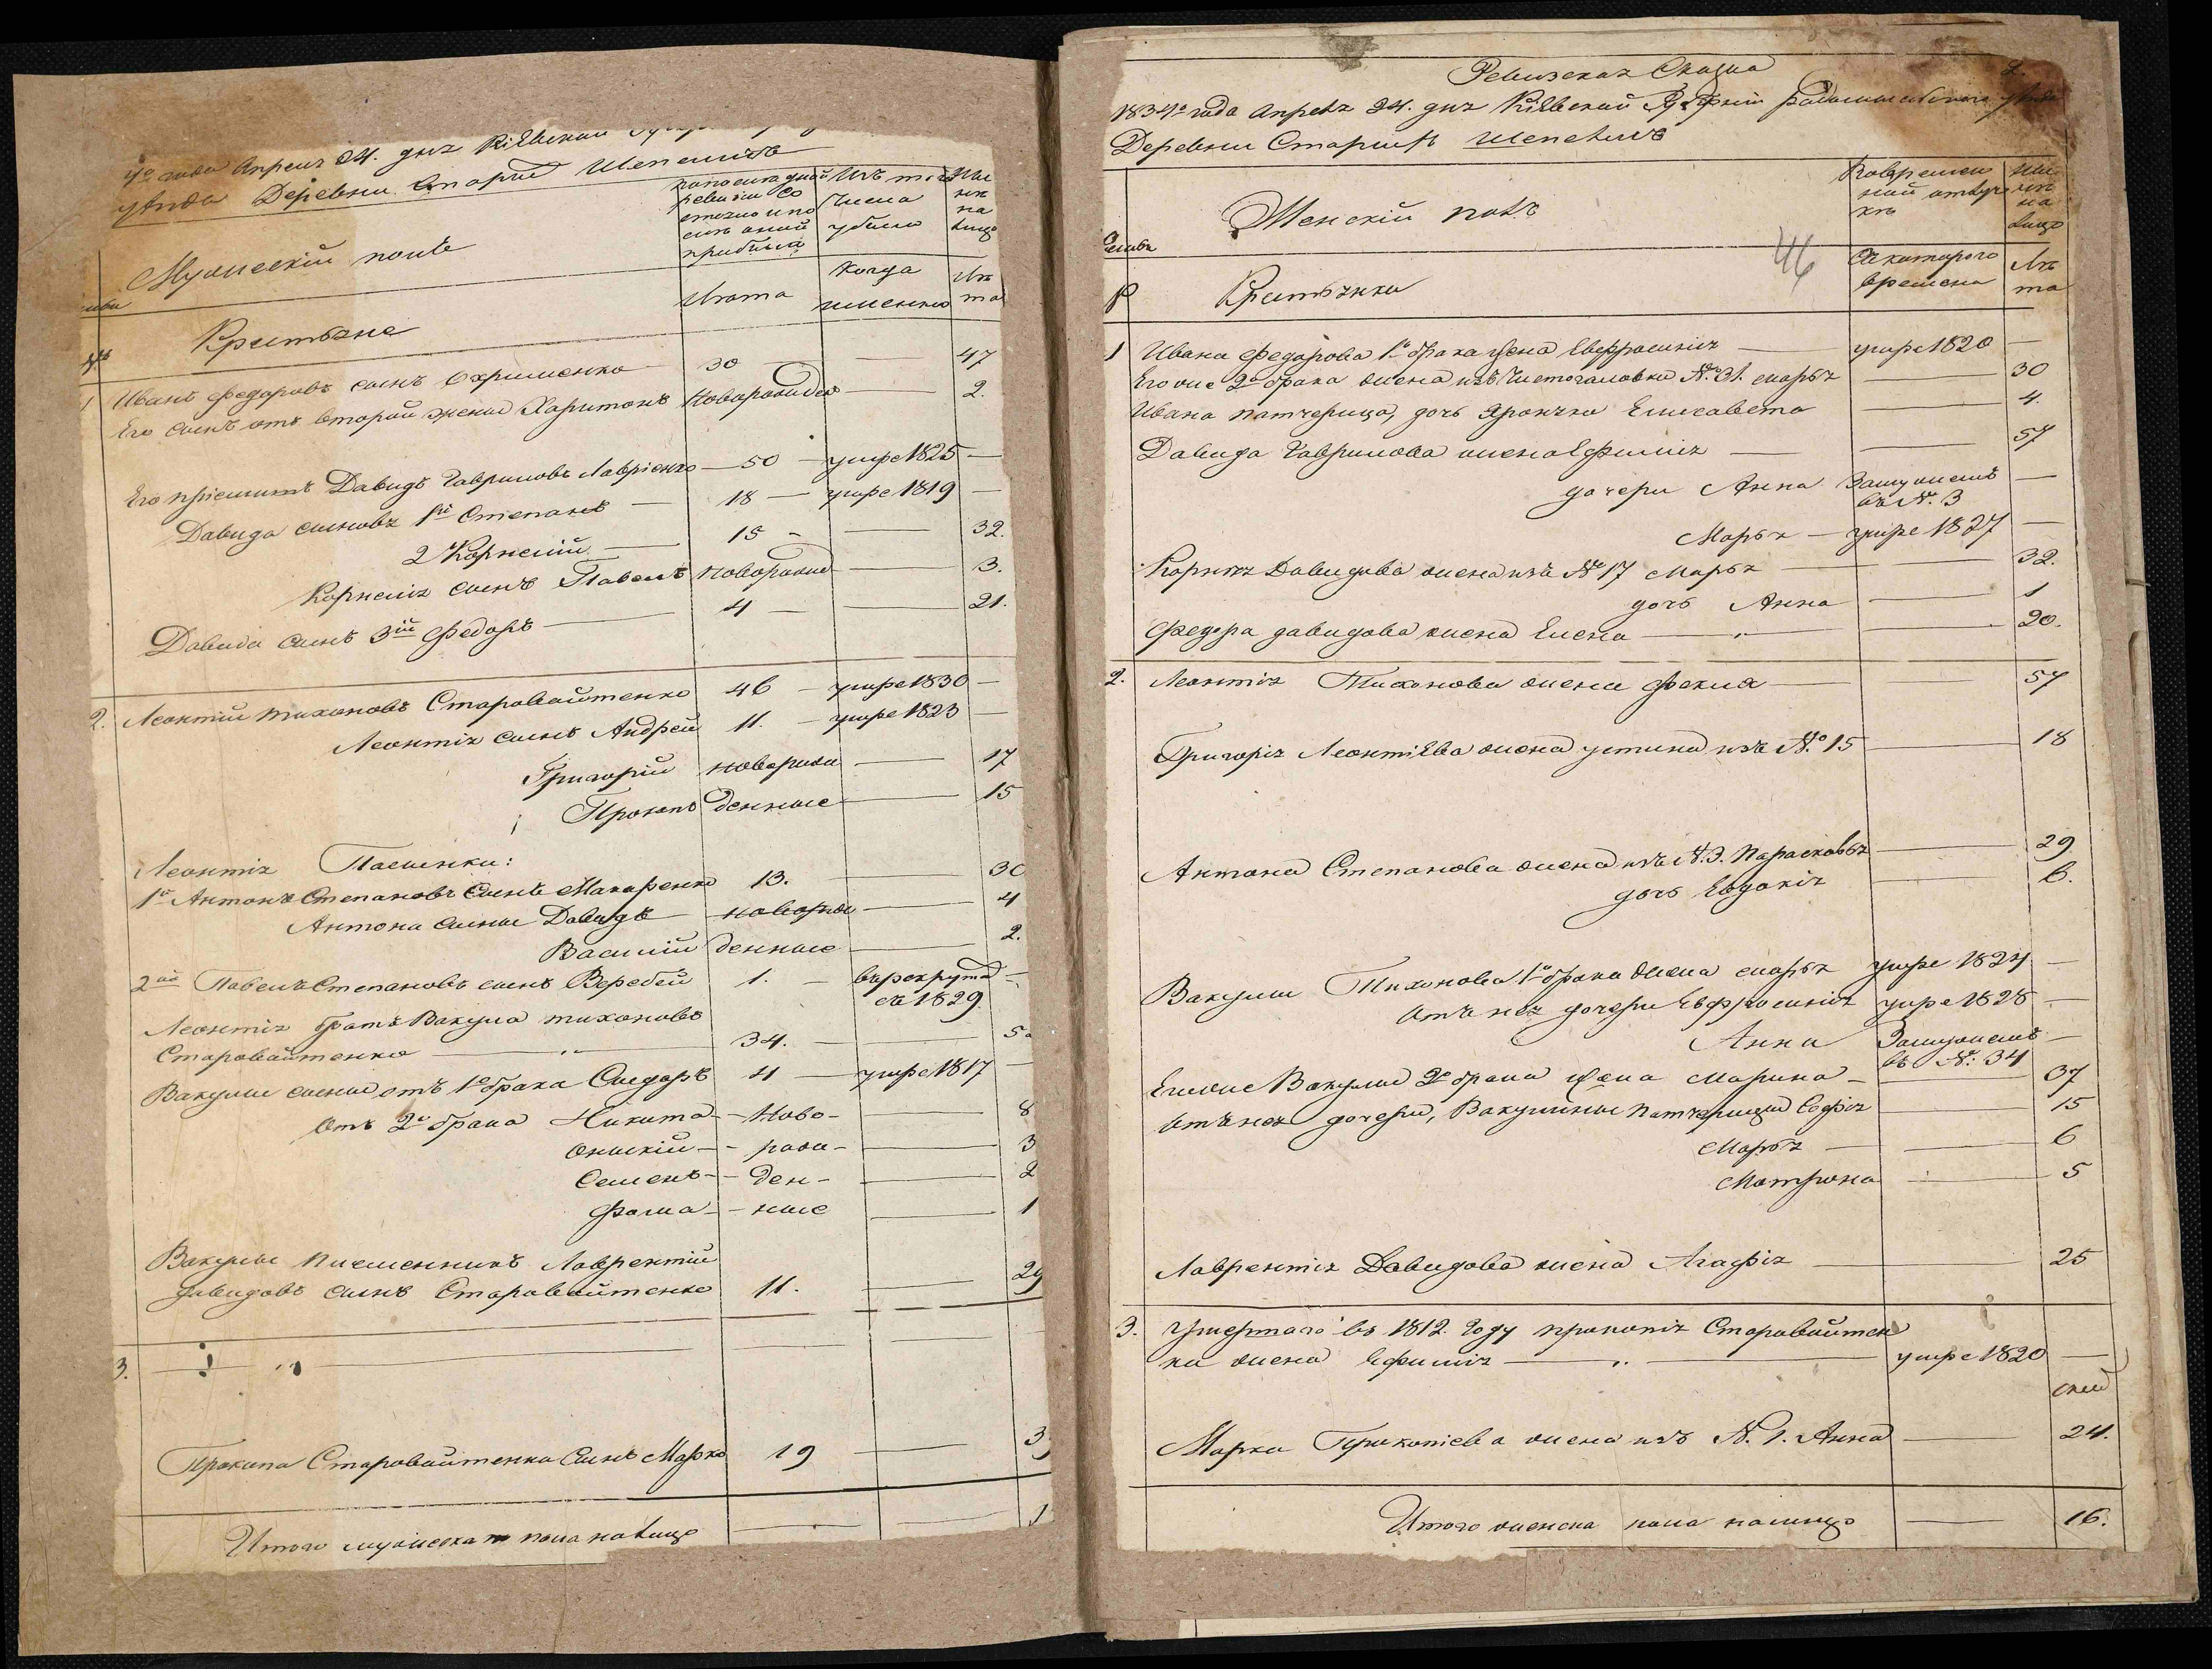 4го года Апреля 24. дня Кіевской
уѣзда Деревни Старой Шепеличъ
Мужескій полъ
По последней ревизіи состояло и после оной прибыло
Изъ того числа убыло
Ныне на лицо
Семьи
Лѣта
Когда именно
Лѣта
№
Крестьяне
1 Иванъ Федоровъ сынъ Охрименко 30 — 47
Его сынъ отъ второй жены Харитонъ новорожден — 2.
Его пріемышъ Давидъ Гавриловъ Лавріенко — 50 — умре 1825 —
Давида сыновья 1й Степанъ — 18 — умре 1819 —
2 Корнелій — 15 — — 32.
Корнелія сынъ Павелъ новорожд — 3.
Давида сынъ 3ій Федоръ — 4 — — 21.
2. Леонтій Тихоновъ Старовойтенко 46 — умре 1830 —
Леонтія сынъ Андрей 11. — умре 1823 —
Григорій новорож — 17
Прокопъ денные — 15
Леонтія Пасынки:
1й Антонъ Степановъ сынъ Макаренко 13. — 30
Антона сыны Давидъ новорож — 4
Василій денные — 2.
2ой Павелъ Степановъ сынъ Веребей 1. — въ рекрута —
съ 1829
Леонтія братъ Вакула Тихоновъ
Старовойтенко — „ — 34. — 5
Вакулы сыны отъ 1го брака Сидоръ 4 — умре 1817 —
отъ 2го брака Никита — Ново- — 8
Онискій — рож- — 3
Семенъ — ден- — 2
Фома — ные — 1
Вакулы племянникъ Лаврентій
Давидовъ сынъ Старовойтенко 11. — 29
3. — „ —
Прокопа Старовойтенка сынъ Марко 19 — 3
Итого мужеска пола налицо — — 1
Ревизская Сказка 2.
1834го года Апреля 24. дня Кіевской Губерніи Радомысльского уѣзда
Деревни Старыхъ Шепеличъ
Семьи
Женскій полъ
Во временной отлучке
Ныне на лицо
46
№
Крестьянки
Съ котораго времени
Лѣта
1 Ивана Федорова 1го брака жена Евфросинія — умре 1820 —
Его же 2го брака жена изъ Чистогаловки №31. Марья — 30
Ивана падчерица, дочь Елисавета — 4.
Давида Гаврилова жена Ефимія — 57
дочери Анна Замужемъ —
въ №. 3
Марья — умре 1827 —
Корнея Давидова жена изъ №17 Марья — 32.
дочь Анна — 1
Федора Давидова жена Елена — „ — 20.
2. Леонтія Тихонова жена Фекла — 57
Григорія Леонтіева жена Устина изъ №. 15 — 18
Антона Степанова жена изъ №.3. Парасковья — 29
дочь Евдокія — 6.
Вакулы Тихонова 1го брака жена Марья умре 1824 —
отъ нея дочери Евфросинія умре 1828 —
Анна Замужемъ —
въ №. 34
Ему же Вакулы 2го брака жена Марина — 37
отъ нея дочери, Вакулины падчерицы Софія — 15
Марья — 6
Матрона — 5
Лаврентія Давидова жена Агафія — 25
3. Умершаго въ 1812. Году Прокопія Старовойтен
ка жена Ефимія — „ — умре 1820 —
Марка Прокопіева жена изъ №. 1. Анна — 24.
Итого женска пола налицо — 16.